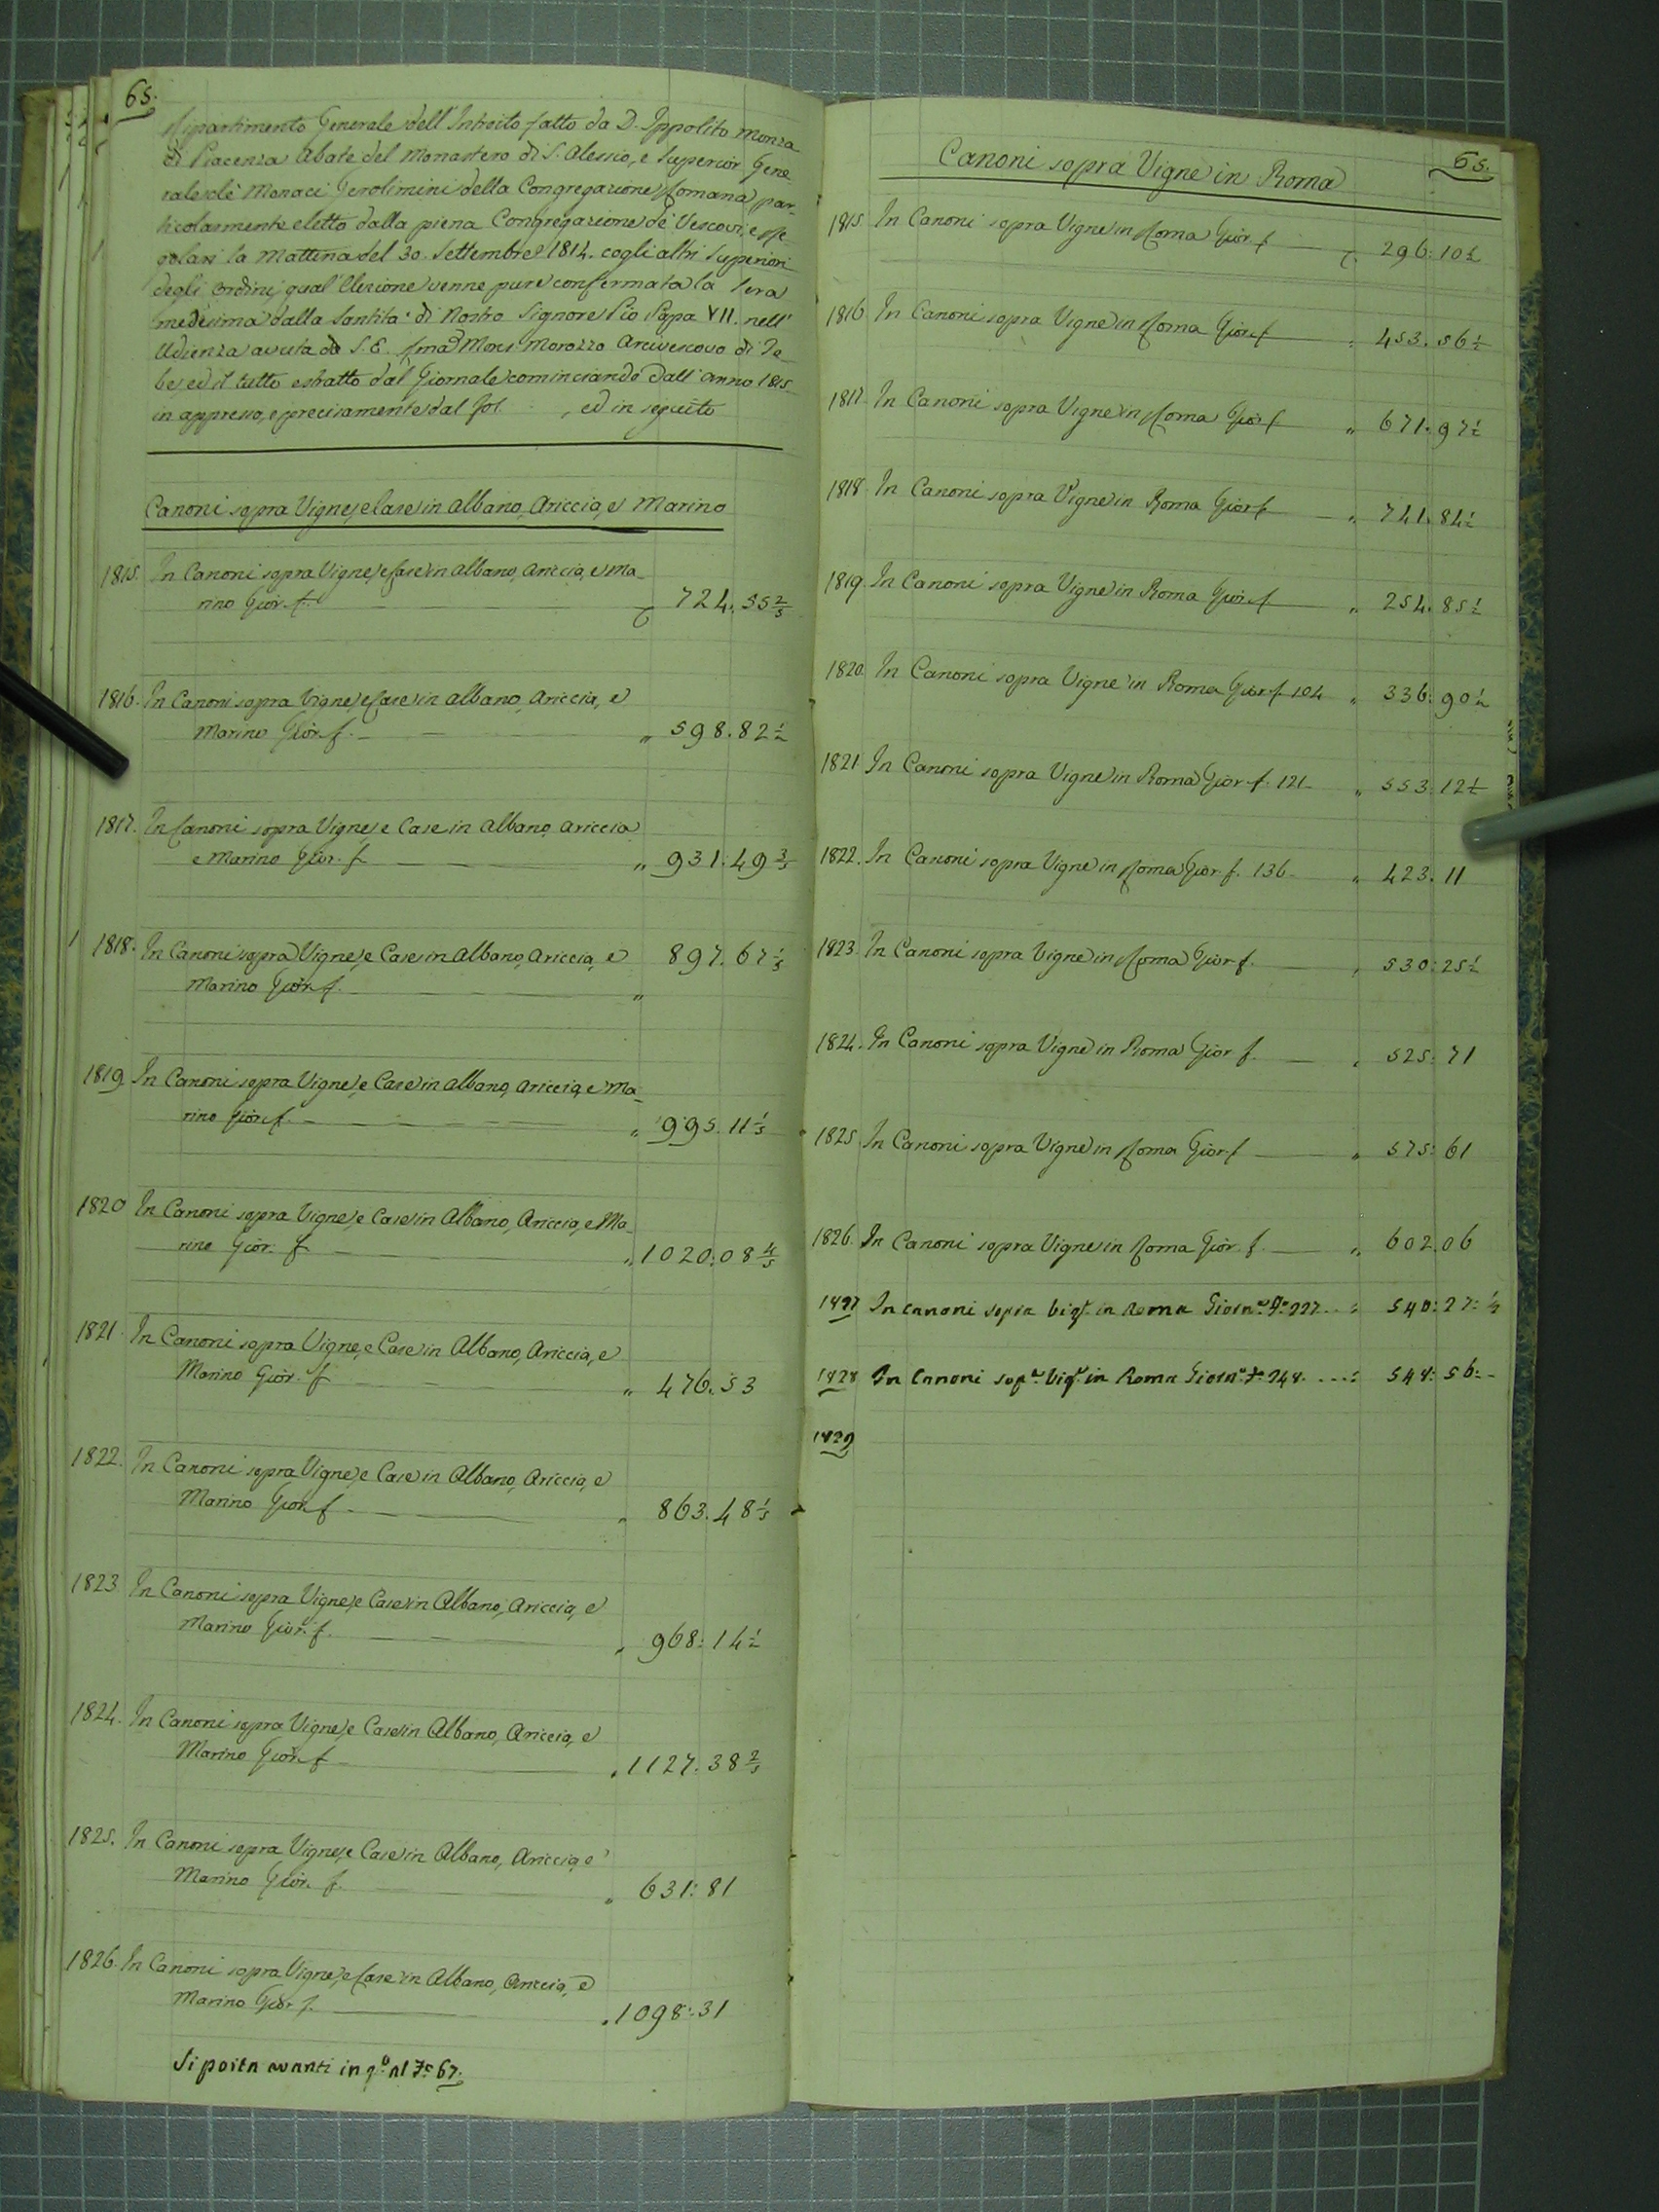 65.
Ripartimento Generale dell'Introito fatto da D. Ippolito Monza
di Piacenza Abate del Monastero di S. Alessio, e Superior Gene-
rale de' Monaci Gerolimini della Congregazione Romana par-
ticolarmente eletto dalla piena Congregazione de' Vescovi, e Re-
golari la Mattina del 30. Settembre 1814. cogli altri Superiori
degli Ordini, qual'Elezione venne pure confermata la sera
medesima dalla Santità di Nostro Signore Pio Papa VII. nell'
Udienza avuta da S.E. Rma Mons. Morozzo Arcivescovo di Te-
be, ed il tutto estratto dal Giornale cominciando dall'anno 1815
in appresso, e precisamente dal fol. , ed in seguito
Canoni sopra Vigne, e Case in Albano, Ariccia, e Marino
1815. In Canoni sopra Vigne, e Case in Albano, Ariccia, e Ma-
rino Gior. f. 724. 55 2/5
1816. In Canoni sopra Vigne, e Case in Albano, Ariccia, e
Marino Gior. f. " 598. 82 1/2
1817. In Canoni sopra Vigne, e Case in Albano, Ariccia
e Marino Gior. f. " 931. 49 3/5
1818. In Canoni sopra Vigne, e Case in Albano, Ariccia, e 897. 67 1/5
Marino Gior. f. "
1819 In Canoni sopra Vigne, e Case in Albano, Ariccia, e Ma-
rino Gior. f. " 995. 11 1/5
1820 In Canoni sopra Vigne, e Case in Albano, Ariccia, e Ma-
rino Gior. f. " 1020. 08 4/5
1821 In Canoni sopra Vigne, e Case in Albano, Ariccia, e
Marino Gior. f. " 476. 53
1822. In Canoni sopra Vigne, e Case in Albano, Ariccia, e
Marino Gior. f. " 863. 48 1/5
1823 In Canoni sopra Vigne, e Case in Albano, Ariccia, e
Marino Gior. f. " 968: 14 1/2
1824. In Canoni sopra Vigne, e Case in Albano, Ariccia, e
Marino Gior. f. " 1127. 38 2/5
1825. In Canoni sopra Vigne, e Case in Albano, Ariccia, e
Marino Gior. f. " 631: 81
1826. In Canoni sopra Vigne, e Case in Albano, Ariccia, e
Marino Gior. f. " 1098: 31
Si porta avanti in qo al Fo 67.
Canoni sopra Vigne in Roma 65.
1815. In Canoni sopra Vigne in Roma Gior. f. 296: 10 1/2
1816 In Canoni sopra Vigne in Roma Gior. f. " 453. 56 1/2
1817. In Canoni sopra Vigne in Roma Gior. f. " 671. 97 1/2
1818. In Canoni sopra Vigne in Roma Gior. f. " 741. 84 1/2
1819. In Canoni sopra Vigne in Roma Gior. f. " 254. 85 1/2
1820. In Canoni sopra Vigne in Roma Gior. f. 104 " 336: 90 1/2
1821 In Canoni sopra Vigne in Roma Gior. f. 121 " 553: 12 1/2
1822. In Canoni sopra Vigne in Roma Gior. f. 136 " 423. 11
1823. In Canoni sopra Vigne in Roma Gior. f. " 530: 25 1/2
1824. In Canoni sopra Vigne in Roma Gior. f. " 525: 71
1825 In Canoni sopra Vigne in Roma Gior. f. " 575: 61
1826. In Canoni sopra Vigne in Roma Gior. f. " 602. 06
1827 In canoni sopra Vige in Roma Giorne Fo 227 .. : 540: 27: 1/2
1828 In Canoni sopa Vige in Roma Giorne Fo 248. ...: 548: 56: -
1829